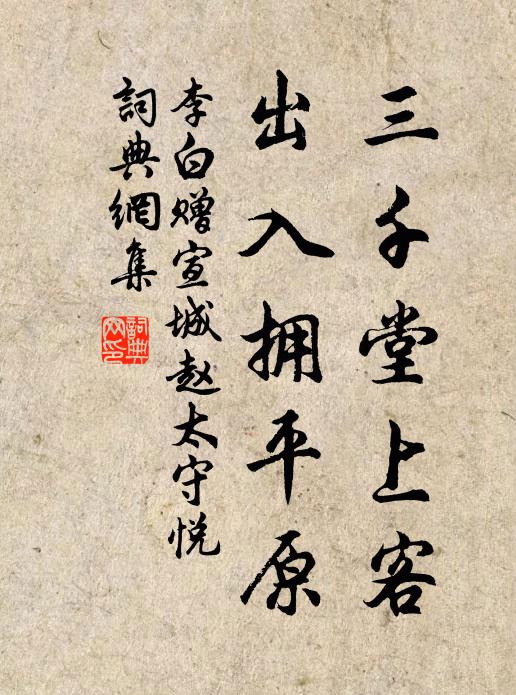 三千堂上客
出入拥平原
李白赠宣城赵太守悦
詞典網集
詞典
网印